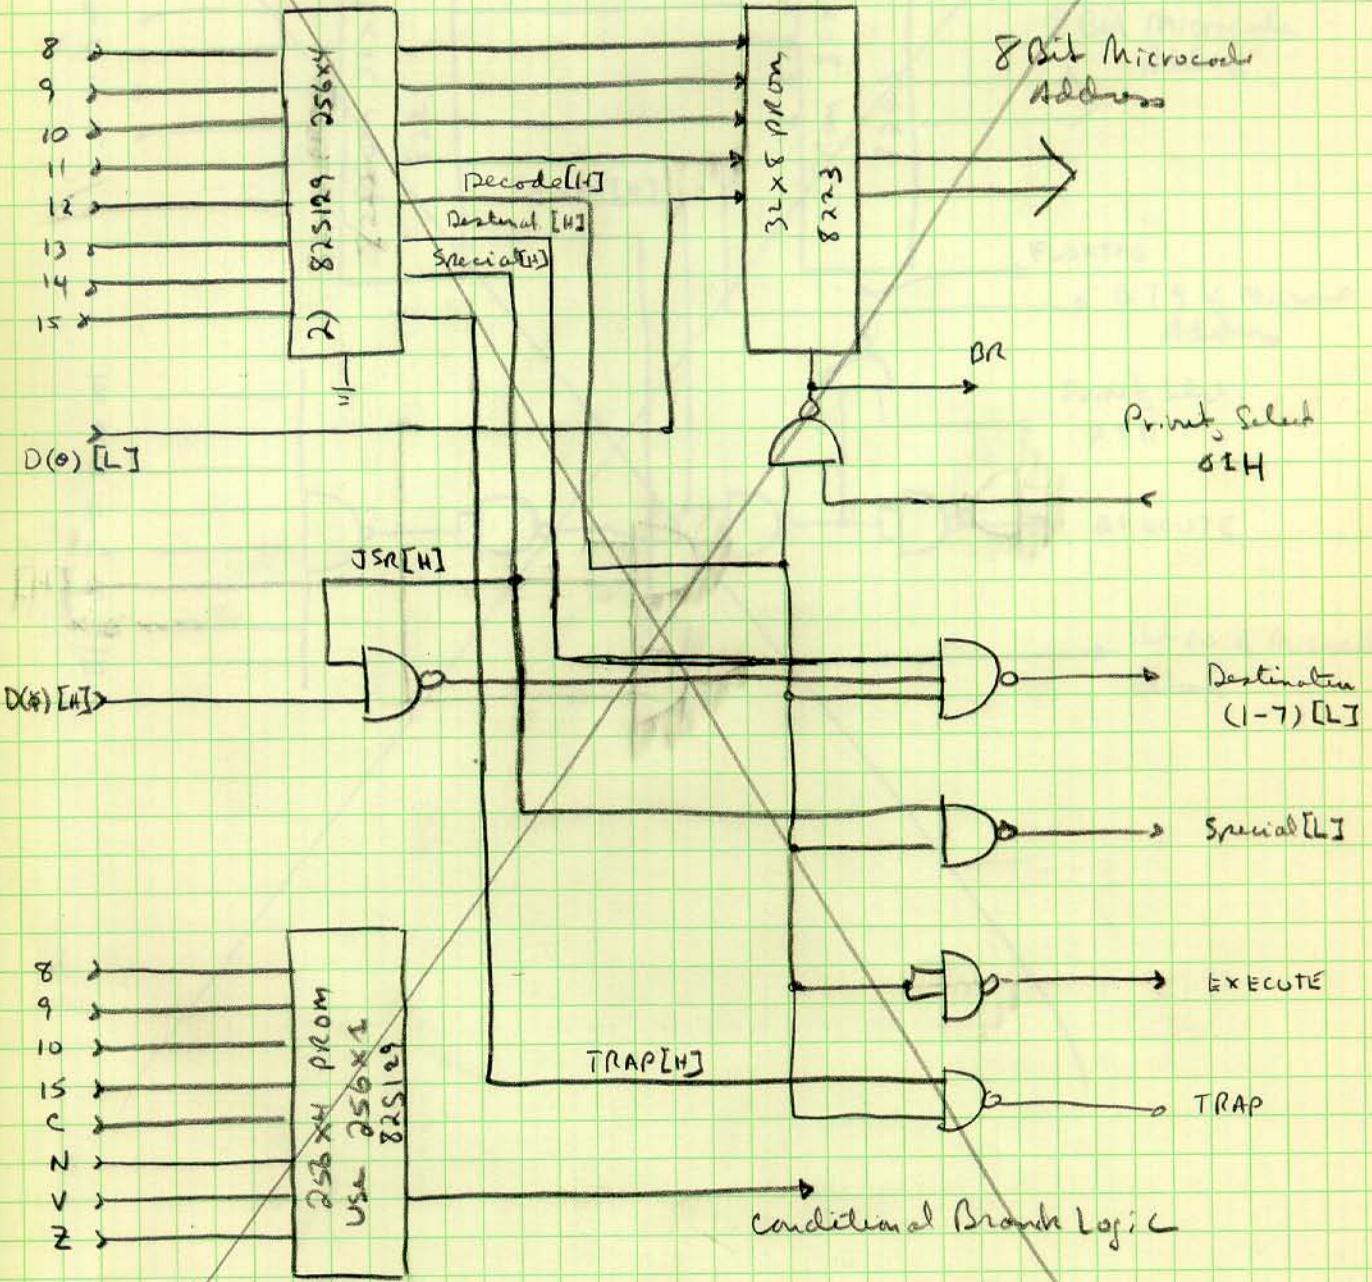 8
9
10
11
12
13
14
15
2) 82S129 256x4
Decode[H]
Destinat. [H]
Special[H]
32x8 PROM
8223
8 Bit Microcode
Address
BR
Priority Select
01H
D(0) [L]
JSR[H]
D(0) [H]
Destination
(1-7) [L]
Special[L]
EXECUTE
TRAP[H]
TRAP
8
9
10
15
C
N
V
Z
256x4 PROM
USE 256x1
82S129
Conditional Branch Logic